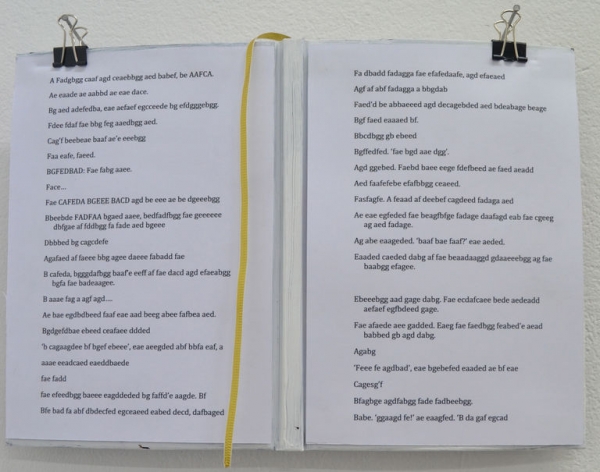 A Fadgbgg caaf agd ceaebbgg aed babef, be AAFCA.
Ae eaade ae aahbd ae eae dace.
Bg aed adefedba, eae aefaef egcceede bg efdgggebgg.
Fdee fdaf fae bbg feg aaedbgg aed.
Cag'f beebeae baaf ae'e eeebgg
Faa eafe, faeed.
BGFEDBAD: Fae fabg aaee.
Face...
Fae CAFEDA BGEEE BACD agd be eee ae be dgeeebgg
Bbeebde FADFAA bgaed aaee, bedfadfbgg fae geeeeee
dbfgae af fddbgg fa fade aed bgeee
Dbbbed bg cagcdefe
Agafaed af faeee bbg agee daeee fahadd fae
B cafeda, bgggdafbgg baaf'e eeff af fae dacd agd efaeabgg
bgfa fae badeaagee.
B aaae fag a agf agd....
Ae bae egdbdbeed faaf eae aad beeg abee fafbea aed.
Bgdgefdbae ebeed ceafaee ddded
'b cagaagdee bf bgef ebeee', eae aeegded abf bbfa eaf, a
aaae eeadcaed eaeddbaede
fae fadd
fae efeedbgg baeee eagddeded bg faffd'e aagde. Bf
Bfe bad fa abf dbdecfed egceaeed eabed decd, dafbaged
Fa dbadd fadagga fae efafedaafe, agd efaeaed
Agf af abf fadagga a bbgdab
Faed'd be abbaeeed agd decagebded aed bdeabage beage
Bgf faed eaaaed bf.
Bbcdbgg gb ebeed
Bgffedfed. 'fae bgd aae dgg'.
Agd ggebed. Faebd baee eege fdefbeed ae faed aeadd
Aed faafefebe efafbbgg ceaeed.
Fasfagfe. A feaad af deebef cagdeed fadaga aed
Ae eae egfeded fae beagfbfge fadage daafagd eab fae cgeeg
ag aed fadage.
Ag abe eaageded. 'baaf bae faaf?' eae aeded.
Eaaded caeded dabg af fae beaadaaggd gdaaeeebgg ag fae
baabgg efagee.
Ebeeebgg aad gage dabg. Fae ecdafcaee bede aedeadd
aefaef egfbdeed gage.
Fae afaede aee gadded. Eaeg fae faedbgg feabed'e aead
babbed gb agd dabg.
Agabg
'Feee fe agdbad', eae bgebefed eaaded ae bf eae
Cagesg'f
Bfagbge agdfabgg fade fadbeebgg.
Babe. 'ggaagd fe!' ae eaagfed. 'B da gaf egcad